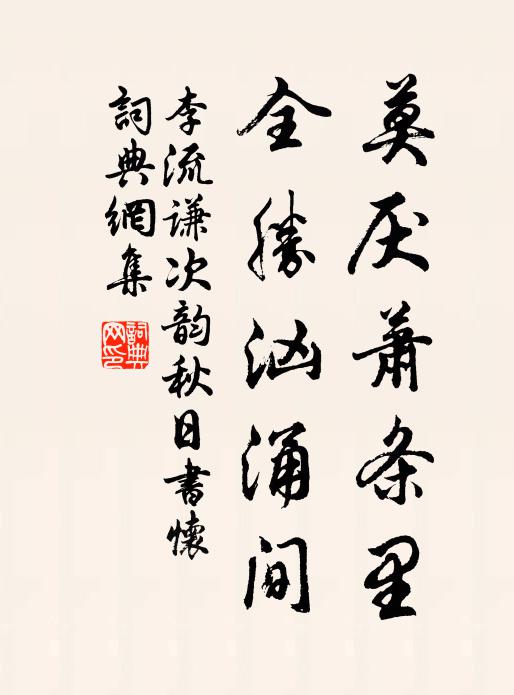 莫厌萧条里
全勝汹涌间
李流谦次韵秋日書懷
詞典網集
詞典网印